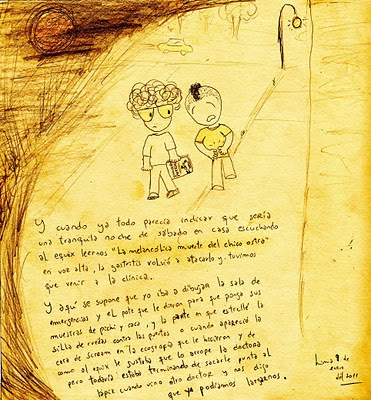 Y cuando ya todo parecía indicar que sería
una tranquila noche de sábado en casa escuchando
al equix leernos "La melancólica muerte del chico ostra"
en voz alta, la gastritis volvió a atacarlo y tuvimos
que venir a la clínica.
Y aquí se supone que yo iba a dibujar la sala de
emergencias y el pote que le dieron para que ponga sus
muestras de pichi y caca, y la parte en que estrellé la
silla de ruedas contra las puertas o cuando apareció la
cara de scream en la ecografía que le hicieron y de
como al equix le gustaba que lo arrope la doctora
pero todavía estaba terminando de sacarle punta al
lápiz cuando vino otro doctor y nos dijo
que ya podíamos largarnos.
Lima 9 de
enero
del 2011